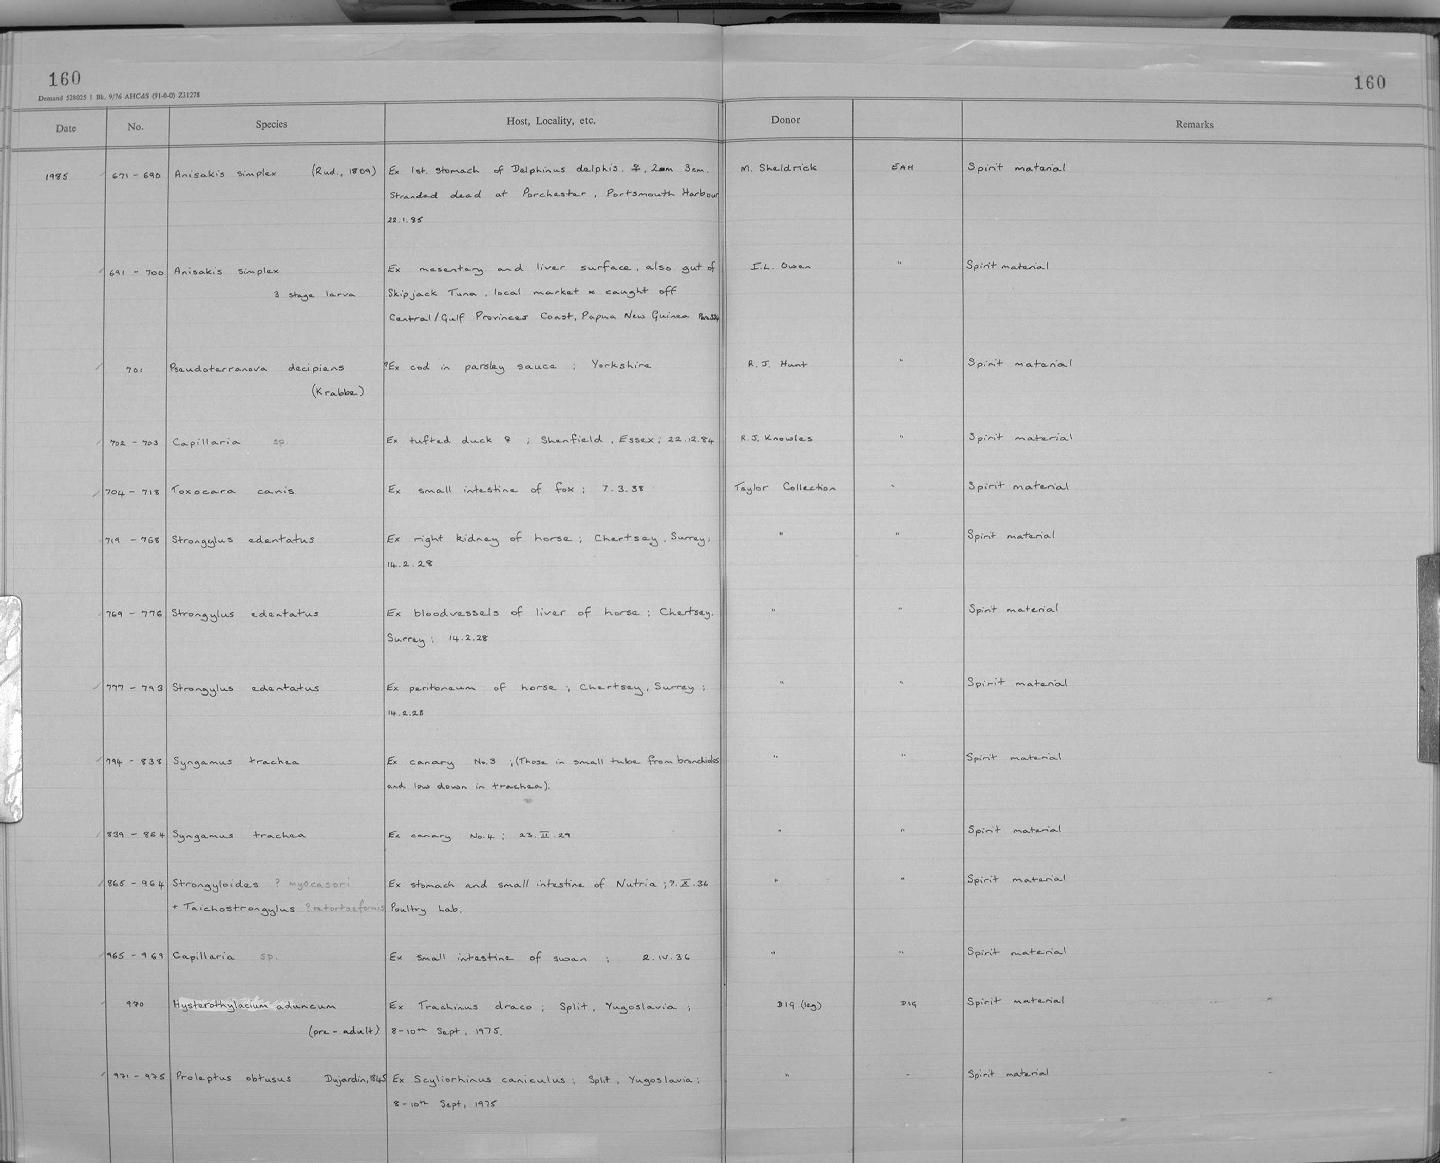 160
160
Demand 528025 1 Bk. 9/76 AHC&S (91-0-0) Z31278
Date No. Species Host, Locality, etc. Donor Remarks
1985 671 - 690 Anisakis simplex (Rud., 1809) Ex 1st. stomach of Delphinus delphis. ♀, 2m 3cm. M. Sheldrick EAH Spirit material
Stranded dead at Porchester, Portsmouth Harbour
22.1.85
691 - 700 Anisakis simplex Ex mesentary and liver surface, also gut of I.L. Owen " Spirit material
3 stage larva Skipjack Tuna, local market caught off
Central/Gulf Provinces Coast, Papua New Guinea
701 Pseudoterranova decipiens ?Ex cod in parsley sauce ; Yorkshire R.J. Hunt " Spirit material
(Krabbe)
702 - 703 Capillaria sp. Ex tufted duck ♀ ; Shenfield, Essex; 22.12.84 R.J. Knowles " Spirit material
704 - 718 Toxocara canis Ex small intestine of fox ; 7.3.38 Taylor Collection " Spirit material
719 - 768 Strongylus edentatus Ex right kidney of horse ; Chertsey, Surrey; " " Spirit material
14.2.28
769 - 776 Strongylus edentatus Ex bloodvessels of liver of horse ; Chertsey, " " Spirit material
Surrey ; 14.2.28
777 - 793 Strongylus edentatus Ex peritoneum of horse ; Chertsey, Surrey ; " " Spirit material
14.2.28
794 - 838 Syngamus trachea Ex canary No.3 ;(Those in small tube from bronchioles " " Spirit material
and low down in trachea).
839 - 864 Syngamus trachea Ex canary No.4 ; 23.II.29 " " Spirit material
865 - 964 Strongyloides ? myocasori Ex stomach and small intestine of Nutria ; 7.X.36 " " Spirit material
+ Taichostrongylus ? retortaeformis Poultry Lab.
965 - 969 Capillaria sp. Ex small intestine of swan ; 2.IV.36 " " Spirit material
970 Hysterothylacium aduncum Ex Trachinus draco ; Split, Yugoslavia ; DIG (leg) DIG Spirit material
(pre-adult) 8-10th Sept, 1975.
971 - 975 Proleptus obtusus Dujardin, 1845 Ex Scyliorhinus caniculus ; Split, Yugoslavia ; " " Spirit material
8-10th Sept, 1975